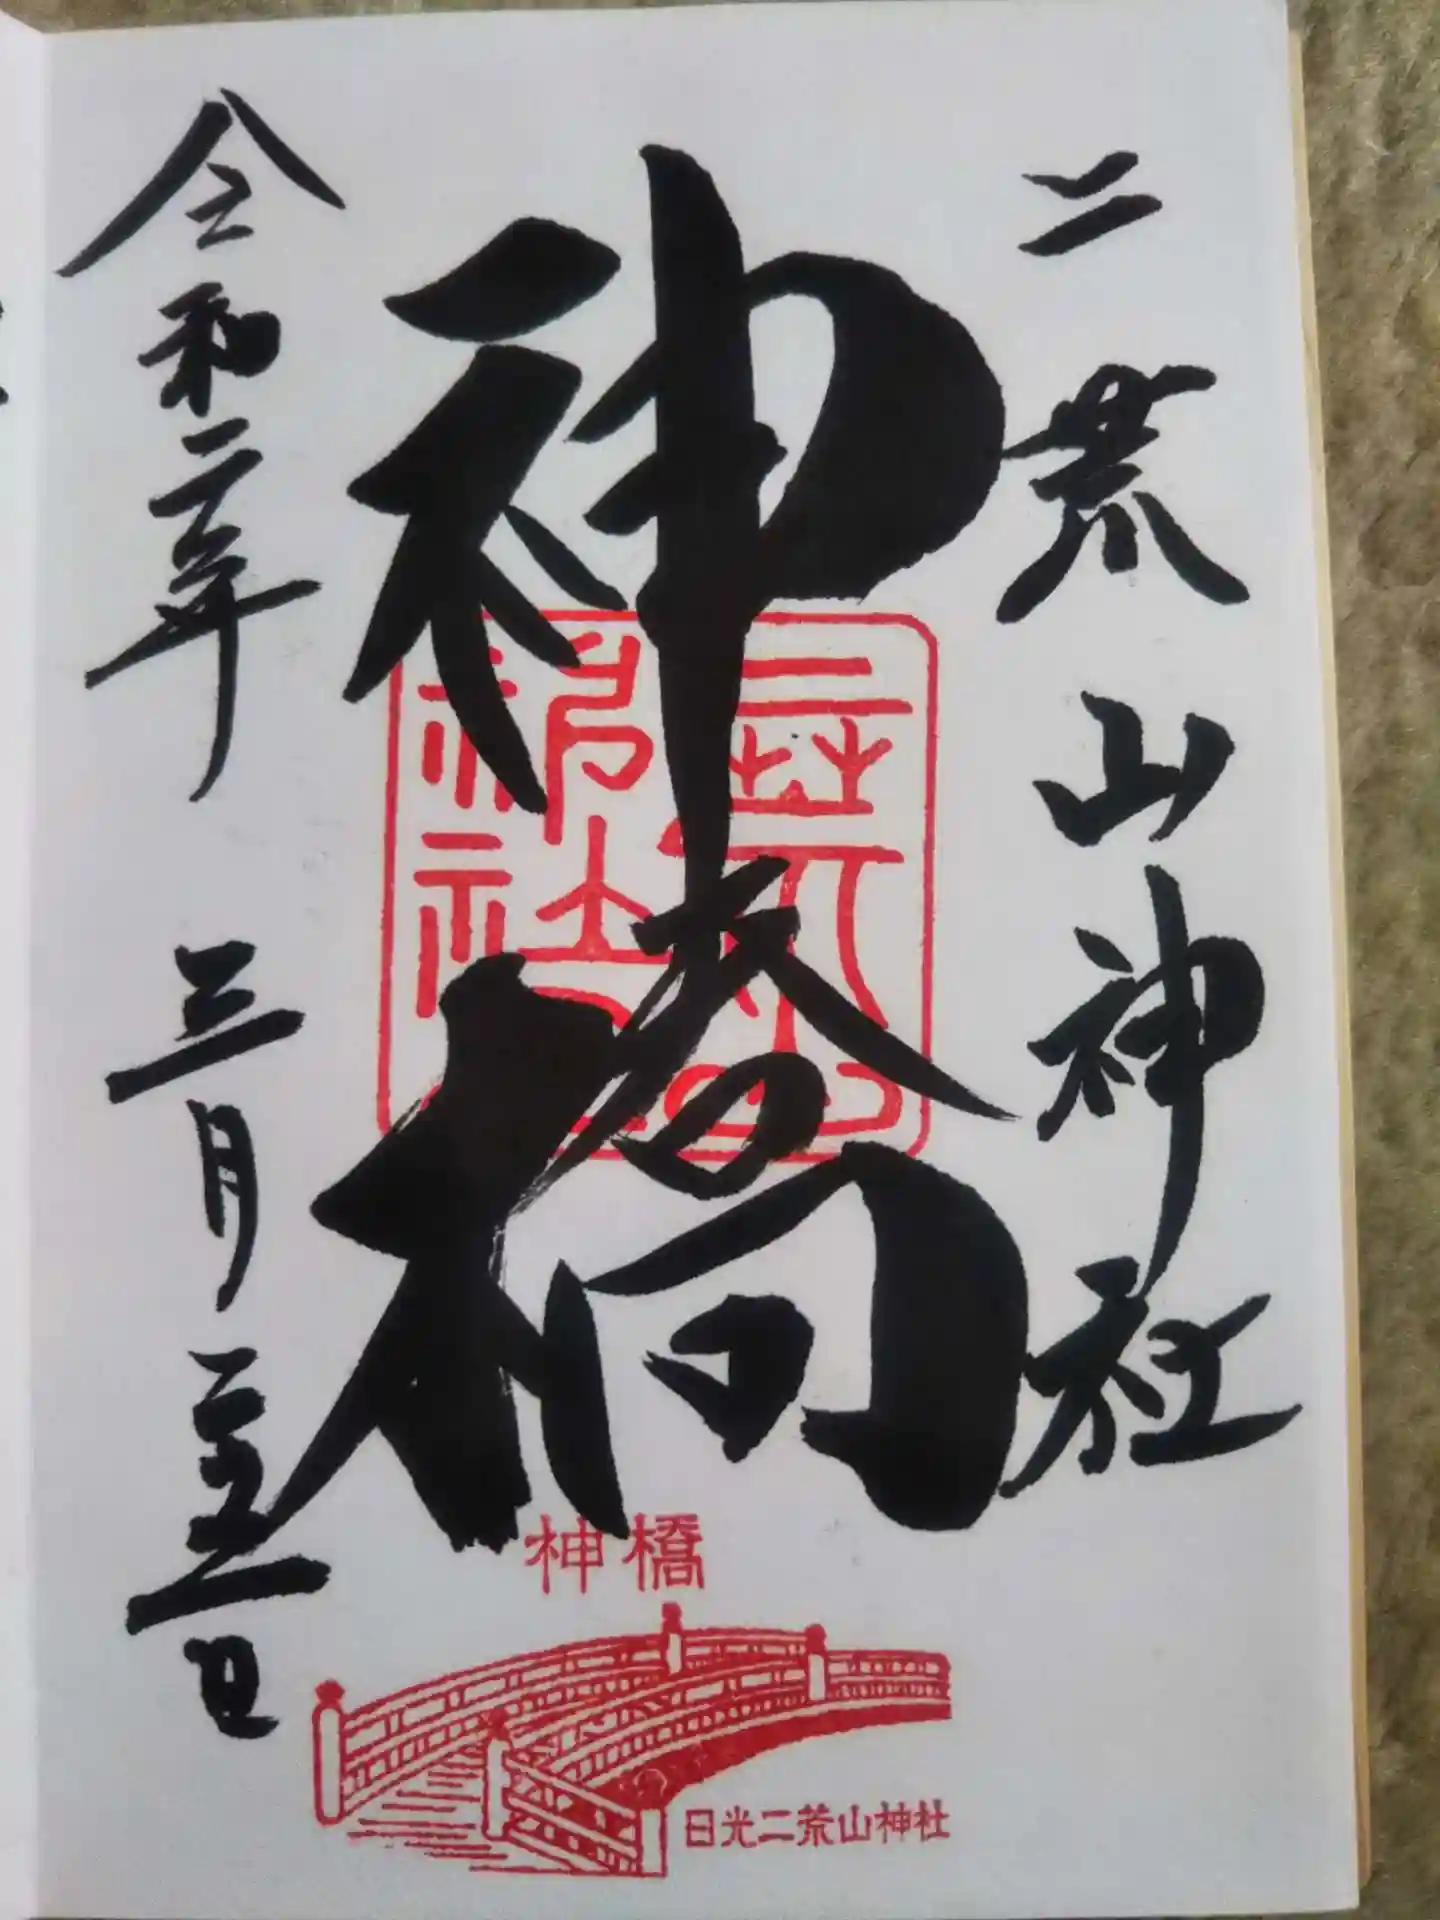 二荒山神社
神橋
令和二年三月二十五日
二荒山神社
神橋
日光二荒山神社